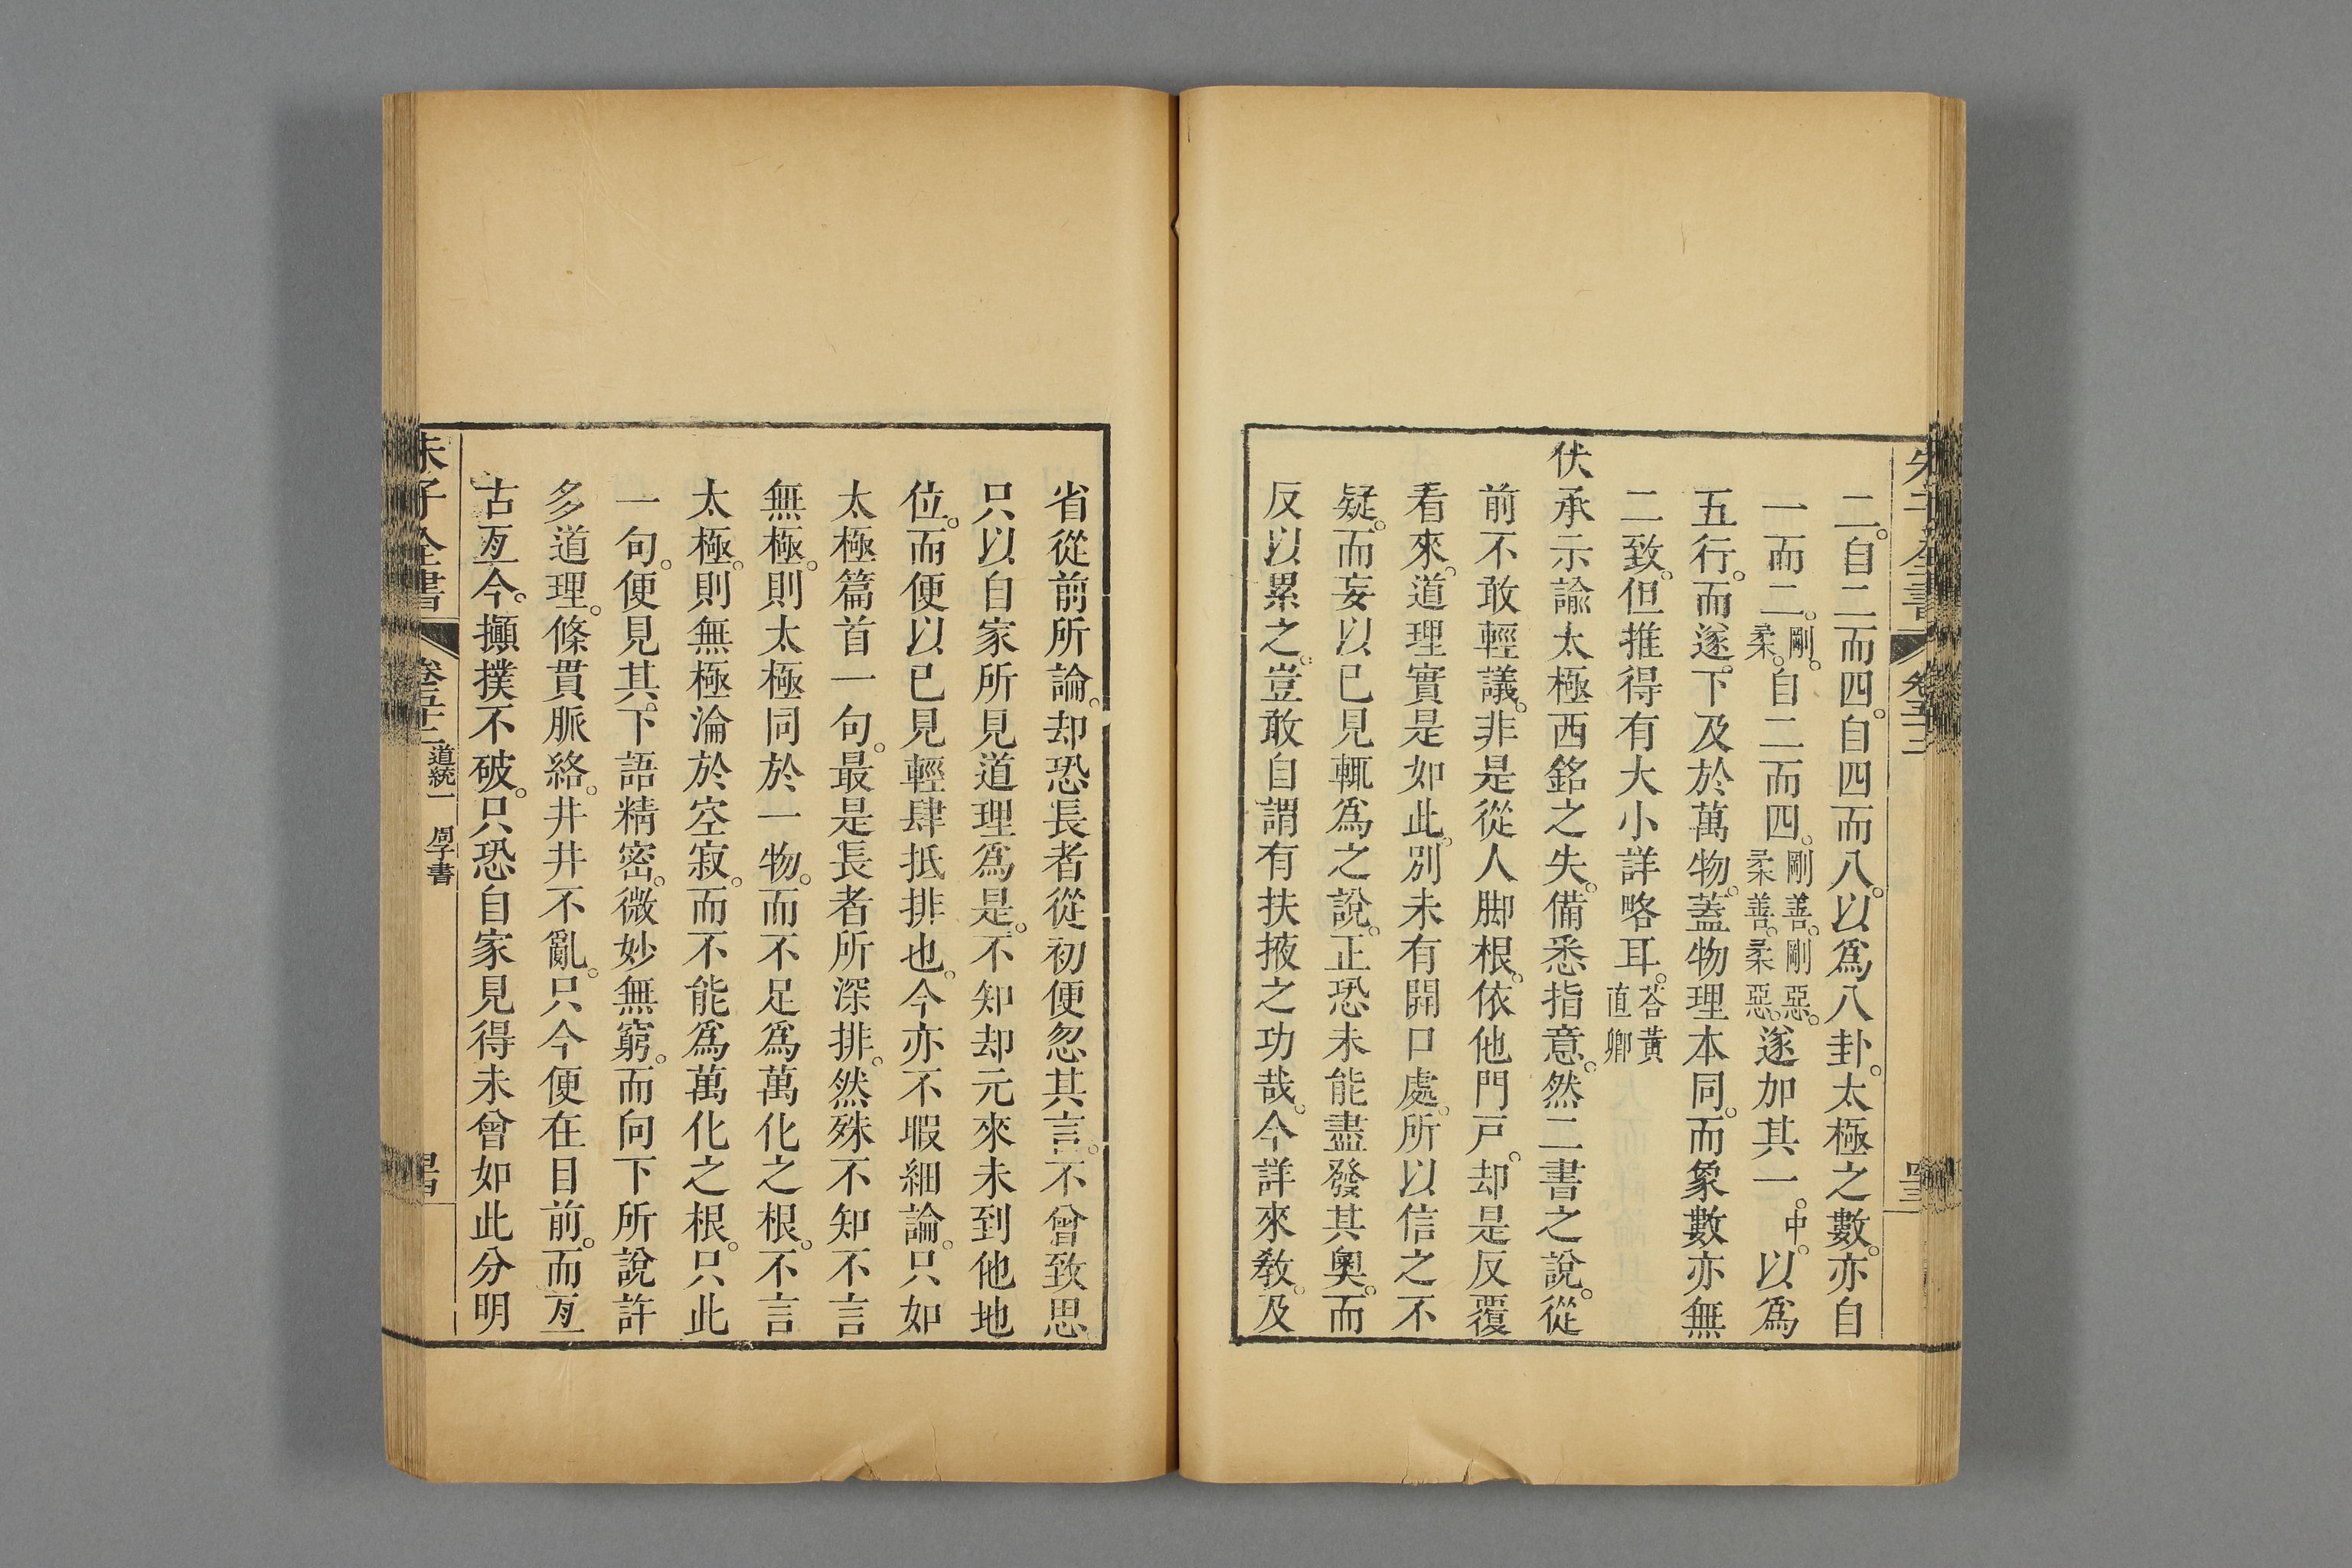 二。自二而四。自四而八。以爲八卦。太極之數。亦自
一而二。剛。柔。自二而四。剛善。剛惡。柔善。柔惡。遂加其一。中。以爲
五行。而遂下及於萬物。蓋物理本同。而象數亦無
二致。但推得有大小詳略耳。荅黃直卿
伏承示諭太極西銘之失。備悉指意。然二書之說。從
前不敢輕議。非是從人脚根。依他門戸。却是反覆
看來。道理實是如此。別未有開口處。所以信之不
疑。而妄以已見輒爲之說。正恐未能盡發其奧。而
反以累之。豈敢自謂有扶掖之功哉。今詳來敎。及
省從前所論。却恐長者從初便忽其言。不曾致思
只以自家所見道理爲是。不知却元來未到他地
位。而便以已見輕肆抵排也。今亦不暇細論。只如
太極篇首一句。最是長者所深排。然殊不知不言
無極。則太極同於一物。而不足爲萬化之根。不言
太極。則無極淪於空寂。而不能爲萬化之根。只此
一句。便見其下語精密。微妙無窮。而向下所說許
多道理。條貫脈絡。井井不亂。只今便在目前。而亙
古亙今。攧撲不破。只恐自家見得未曾如此分明
朱子全書 卷五十二 道統一 周子書